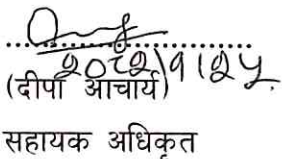 २०८२।९।२५
(दीपा आचार्य)
सहायक अधिकृत